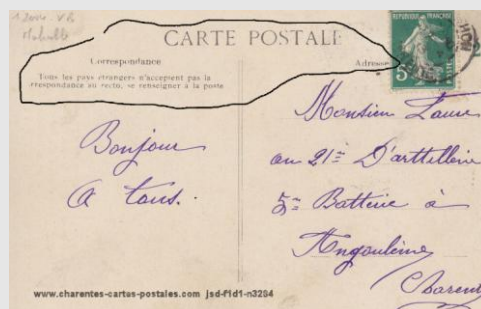 CARTE POSTALE
Correspondance
Tous les pays étrangers n'acceptent pas la
correspondance au recto, se renseigner à la poste
Adresse
REPUBLIQUE FRANÇAISE
5
Bonjour
A tous.
Monsieur
au 21è D'arttillerie
5è Batterie à
Angoulème
Charente
www.charentes-cartes-postales.com jsd-f1d1-n3284